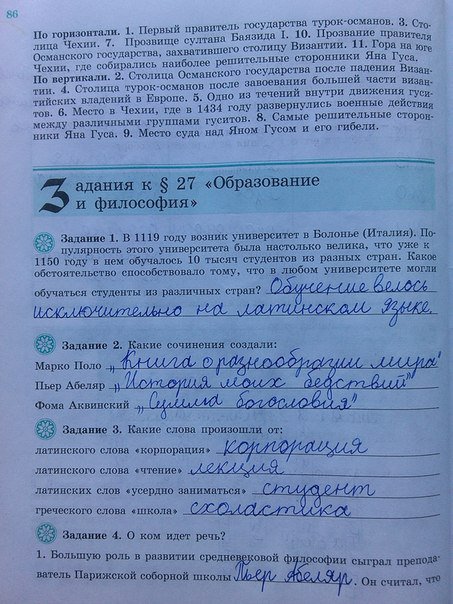 86
По горизонтали. 1. Первый правитель государства турок-османов. 3. Сто-
лица Чехии. 7. Прозвище султана Баязида I. 10. Прозвание правителя
Османского государства, захватившего столицу Византии. 11. Гора на юге
Чехии, где собирались наиболее решительные сторонники Яна Гуса.
По вертикали. 2. Столица Османского государства после падения Визан-
тии. 4. Столица турок-османов после завоевания большей части визан-
тийских владений в Европе. 5. Одно из течений внутри движения гуси-
тов. 6. Место в Чехии, где в 1434 году развернулись военные действия
между различными группами гуситов. 8. Самые решительные сторон-
ники Яна Гуса. 9. Место суда над Яном Гусом и его гибели.
Задания к § 27 «Образование
и философия»
Задание 1. В 1119 году возник университет в Болонье (Италия). По-
пулярность этого университета была настолько велика, что уже к
1150 году в нем обучалось 10 тысяч студентов из разных стран. Какое
обстоятельство способствовало тому, что в любом университете могли
обучаться студенты из различных стран? Обучение велось
исключительно на латинском языке.
Задание 2. Какие сочинения создали:
Марко Поло „Книга о разнообразии мира"
Пьер Абеляр „История моих бедствий"
Фома Аквинский „Сумма богословия"
Задание 3. Какие слова произошли от:
латинского слова «корпорация» корпорация
латинского слова «чтение» лекция
латинских слов «усердно заниматься» студент
греческого слова «школа» схоластика
Задание 4. О ком идет речь?
1. Большую роль в развитии средневековой философии сыграл препода-
ватель Парижской соборной школы Пьер Абеляр. Он считал, что